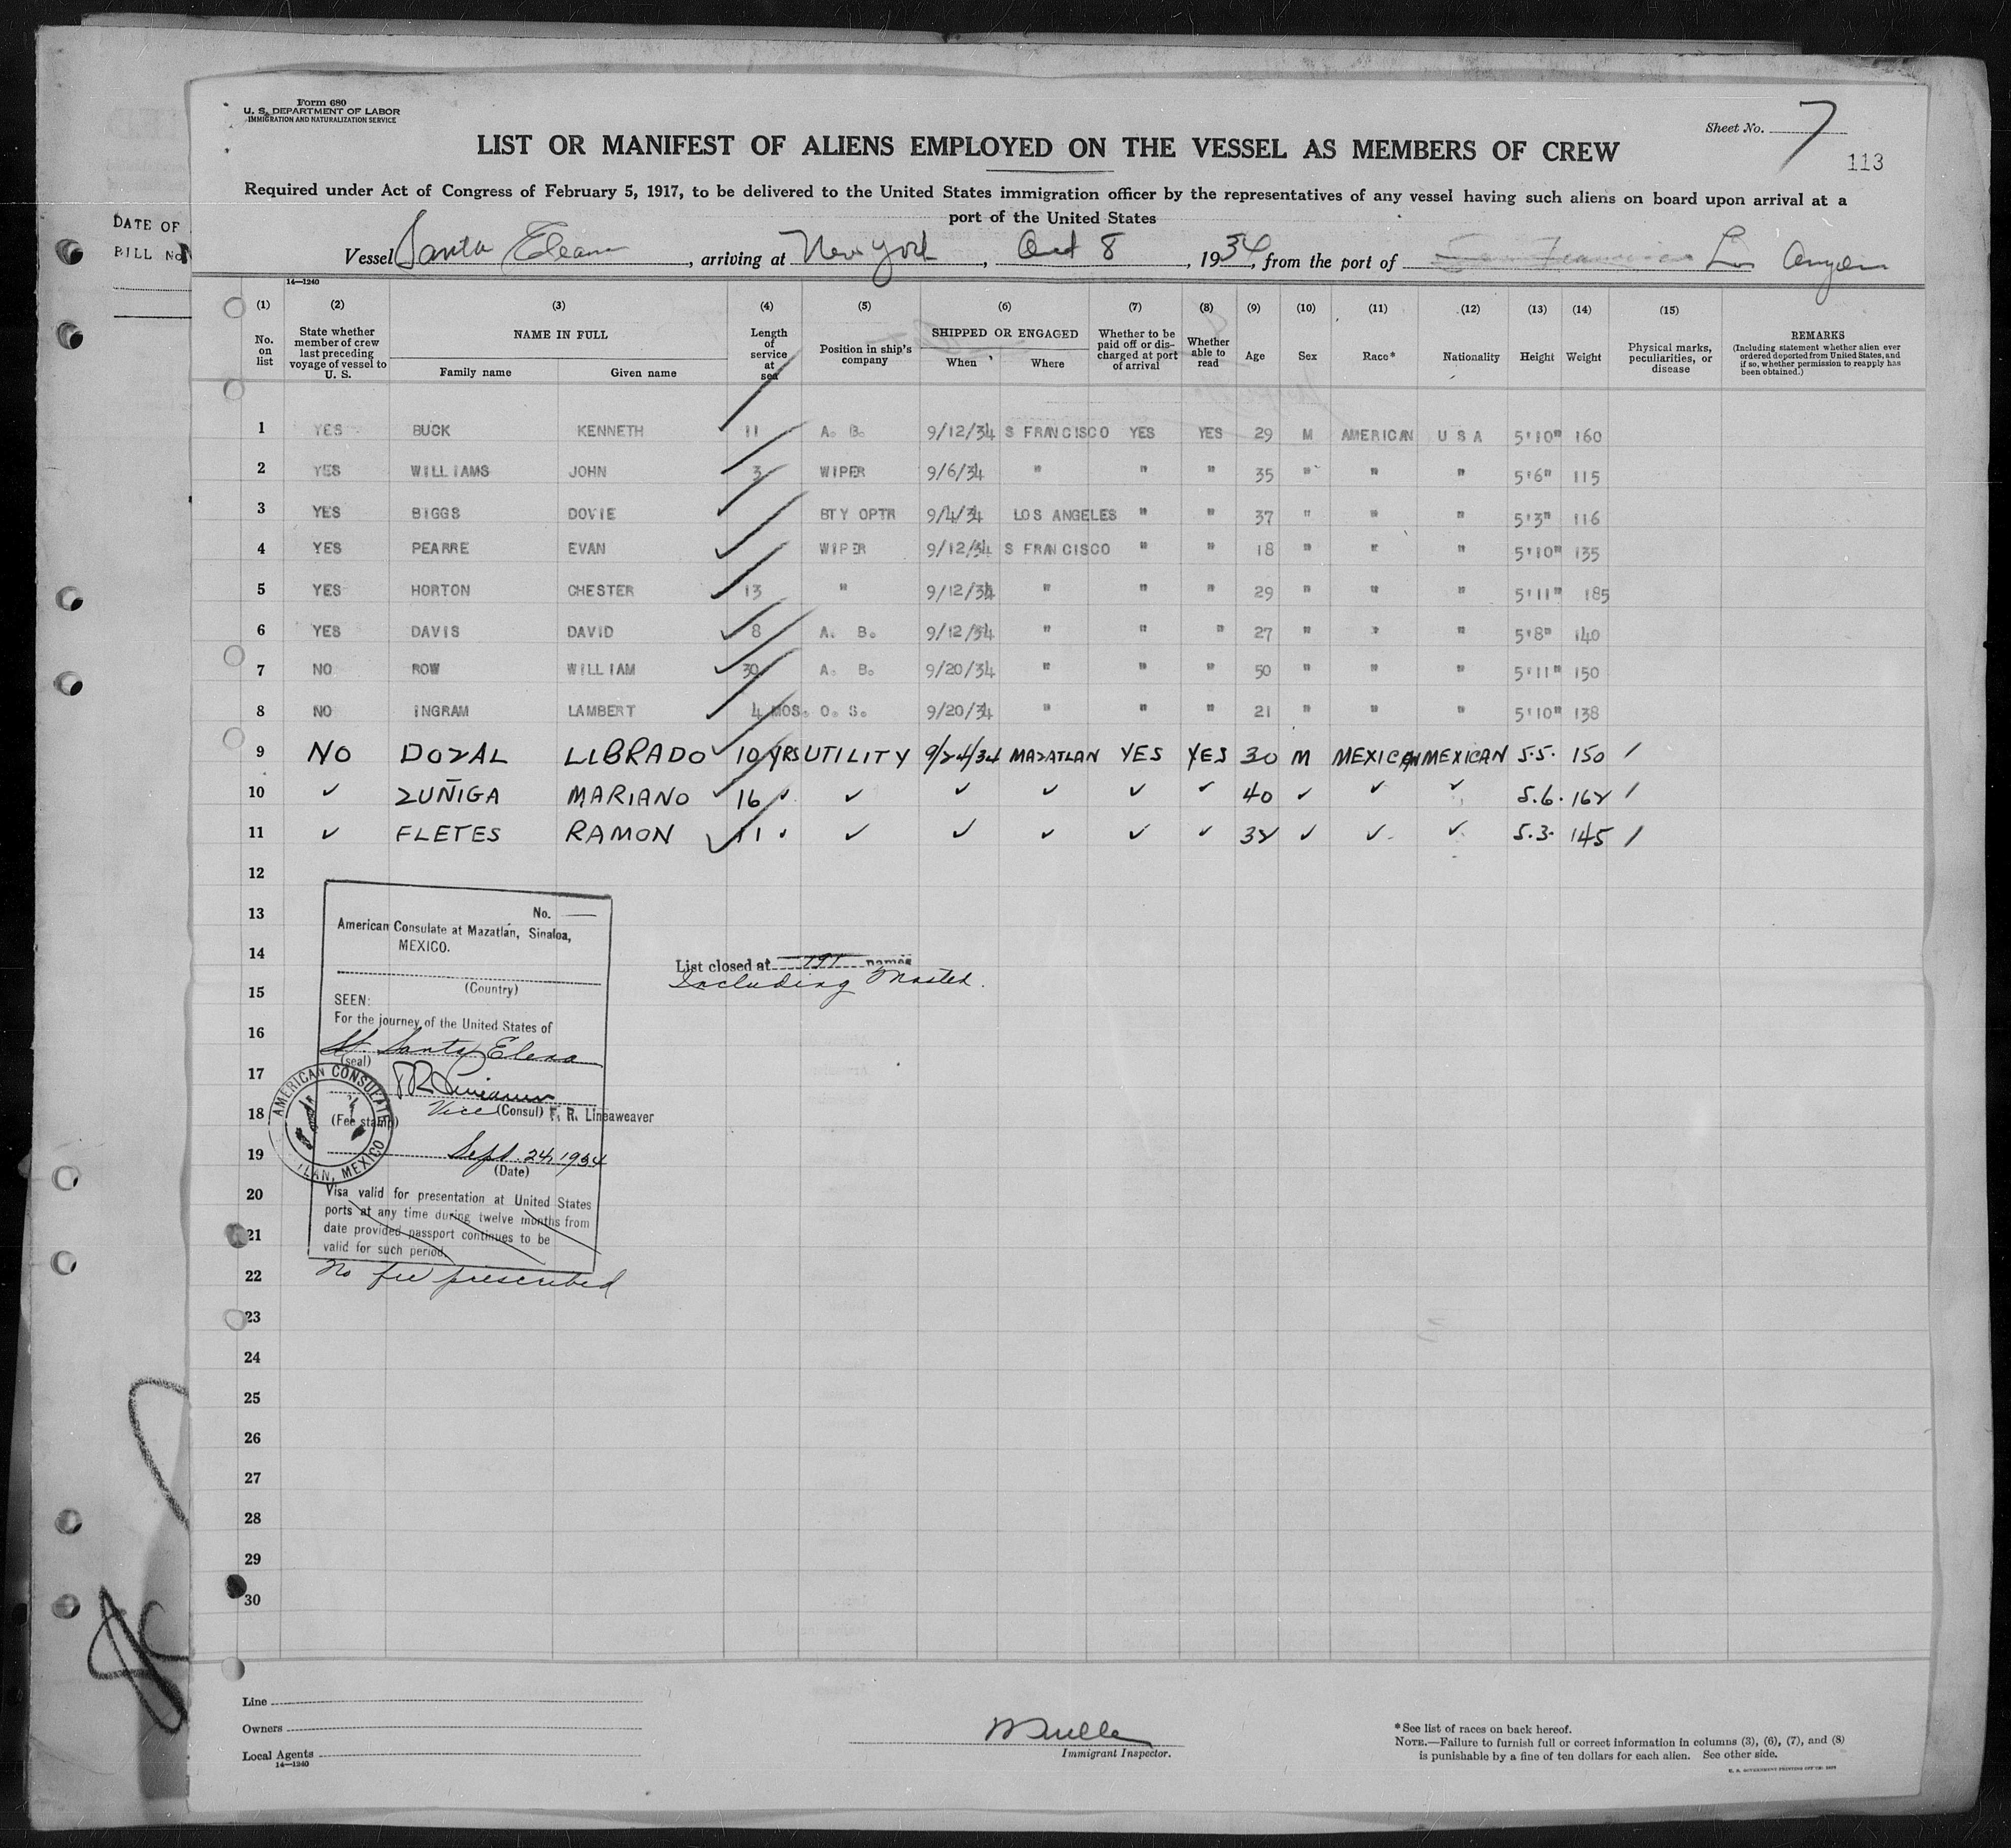 Form 680
U. S. DEPARTMENT OF LABOR
IMMIGRATION AND NATURALIZATION SERVICE
Sheet No. 7
113
LIST OR MANIFEST OF ALIENS EMPLOYED ON THE VESSEL AS MEMBERS OF CREW
Required under Act of Congress of February 5, 1917, to be delivered to the United States immigration officer by the representatives of any vessel having such aliens on board upon arrival at a
port of the United States
DATE OF
BILL No
Vessel Santa Elena, arriving at New York, Oct 8, 1934, from the port of San Francisco Los Angeles
14—1240
(1) (2) (3) (4) (5) (6) (7) (8) (9) (10) (11) (12) (13) (14) (15)
No. on list
State whether member of crew last preceding voyage of vessel to U. S.
NAME IN FULL
Family name Given name
Length of service at sea
Position in ship's company
SHIPPED OR ENGAGED
When Where
Whether to be paid off or discharged at port of arrival
Whether able to read
Age Sex Race* Nationality Height Weight
Physical marks, peculiarities, or disease
REMARKS
(Including statement whether alien ever ordered deported from United States, and if so, whether permission to reapply has been obtained.)
1 YES BUCK KENNETH 11 A. B. 9/12/34 S FRANCISCO YES YES 29 M AMERICAN U S A 5'10" 160
2 YES WILLIAMS JOHN 3 WIPER 9/6/34 " " " 35 " " " 5'6" 115
3 YES BIGGS DOVIE BTY OPTR 9/4/34 LOS ANGELES " " 37 " " " 5'3" 116
4 YES PEARRE EVAN WIPER 9/12/34 S FRANCISCO " " 18 " " " 5'10" 135
5 YES HORTON CHESTER 13 " 9/12/34 " " " 29 " " " 5'11" 185
6 YES DAVIS DAVID 8 A. B. 9/12/34 " " " 27 " " " 5'8" 140
7 NO ROW WILLIAM 30 A. B. 9/20/34 " " " 50 " " " 5'11" 150
8 NO INGRAM LAMBERT 4 MOS. O. S. 9/20/34 " " " 21 " " " 5'10" 138
9 NO DOZAL LIBRADO 10 YRS UTILITY 9/24/34 MAZATLAN YES YES 30 M MEXICAN MEXICAN 5.5. 150 /
10 ✓ ZUÑIGA MARIANO 16 ✓ ✓ ✓ ✓ ✓ ✓ 40 ✓ ✓ ✓ 5.6. 162 /
11 ✓ FLETES RAMON 11 ✓ ✓ ✓ ✓ ✓ ✓ 32 ✓ ✓ ✓ 5.3. 145 /
12
13
14
15
16
17
18
19
20
21
22
23
24
25
26
27
28
29
30
No. —
American Consulate at Mazatlán, Sinaloa,
MEXICO.
(Country)
SEEN:
For the journey of the United States of
SS. Santa Elena
(seal)
Vice (Consul) F. R. Lineaweaver
(Fee stamp)
AMERICAN CONSULATE
TLAN, MEXICO
Sept. 24, 1934
(Date)
Visa valid for presentation at United States
ports at any time during twelve months from
date provided passport continues to be
valid for such period.
No fee prescribed
List closed at 191 names
Including Master.
Line
Owners
Local Agents
14—1240
Immigrant Inspector.
*See list of races on back hereof.
NOTE.—Failure to furnish full or correct information in columns (3), (6), (7), and (8)
is punishable by a fine of ten dollars for each alien. See other side.